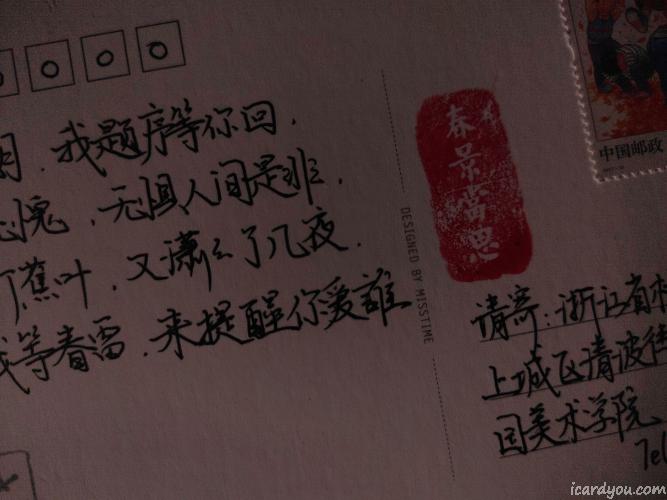 0 0 0
我题序等你回.
愧.无惧人间是非.
蕉叶.又潇了几夜.
我等春雷.来提醒你爱誰
DESIGNED BY MISSTIME
春景常思
中国邮政
请寄:浙江省杭
上城区清波街
国美术学院
Tel
icardyou.com